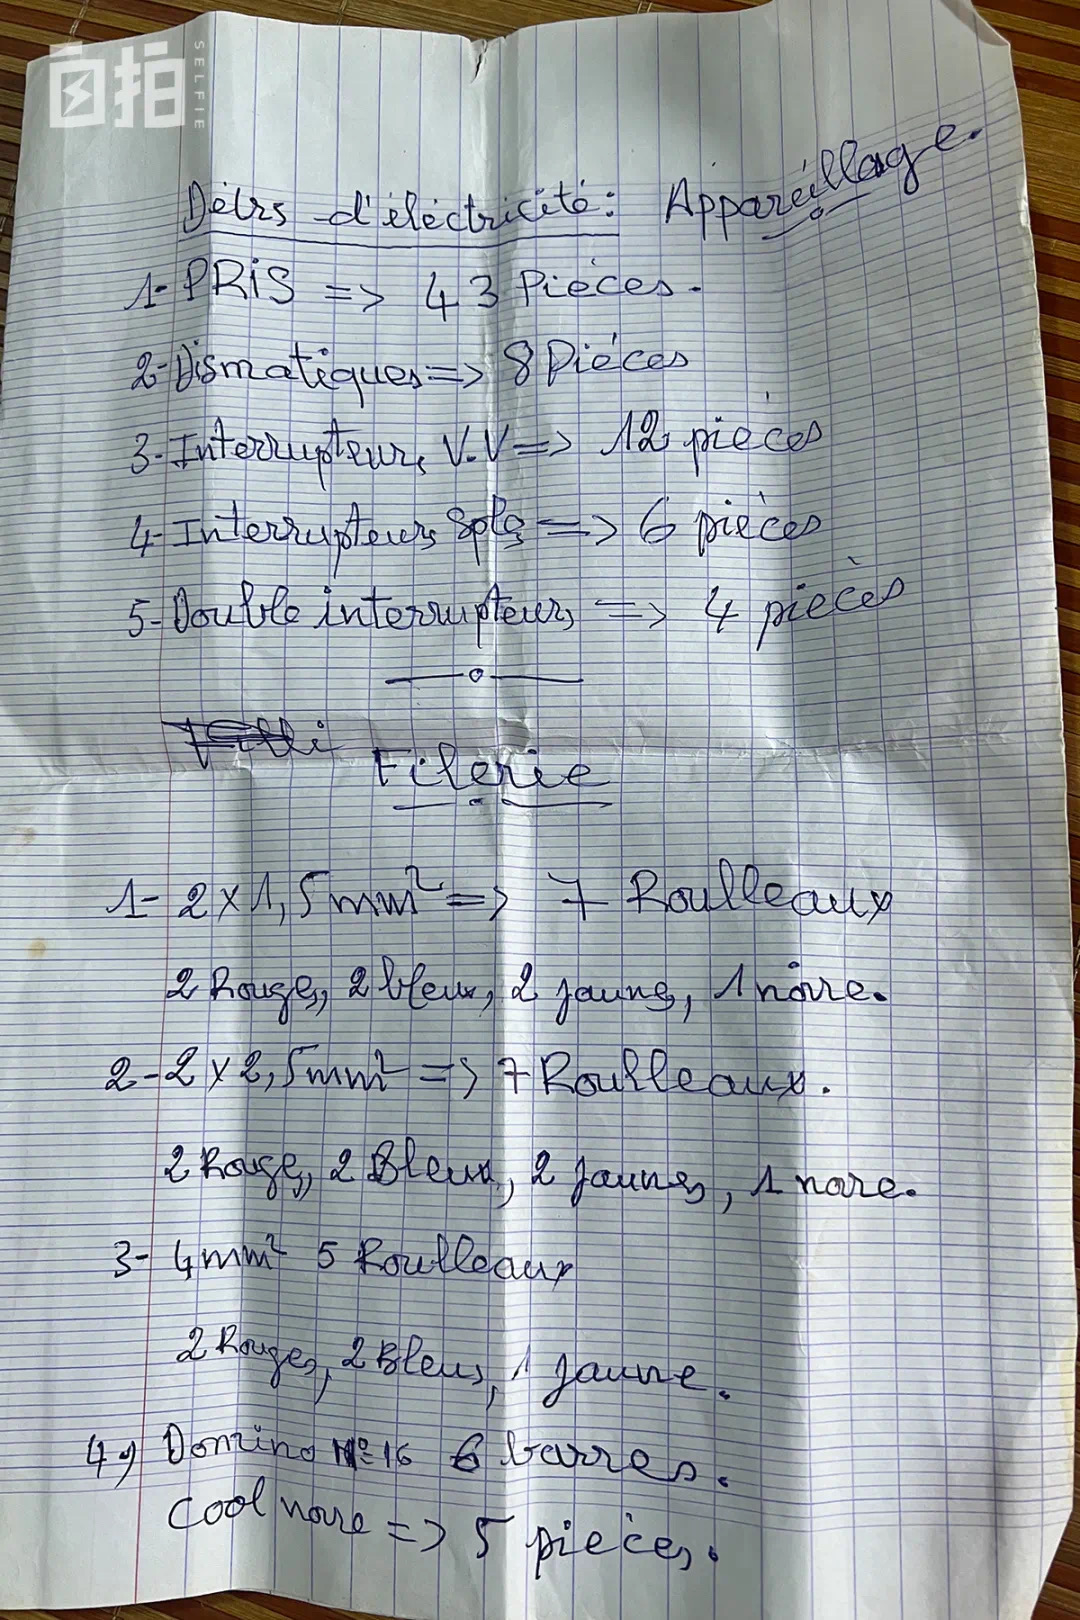 自拍
SELFIE
Détrs d'éléctricité: Appareillage.
1- PRiS => 43 Pièces.
2- Dismatiques => 8 Pièces
3- Interrupteurs V.V => 12 pièces
4- Interrupteurs Spls => 6 pièces
5- Double interrupteurs => 4 pièces
Filerie
1- 2 x 1,5 mm² => 7 Roulleaux
2 Rouges, 2 bleux, 2 jaunes, 1 noire.
2- 2 x 2,5 mm² => 7 Roulleaux.
2 Rouges, 2 Bleux, 2 jaunes, 1 noire.
3- 4 mm² 5 Roulleaux
2 Rouges, 2 Bleus, 1 jaune.
4) Domino N°16 6 barres.
Cool noire => 5 pièces.